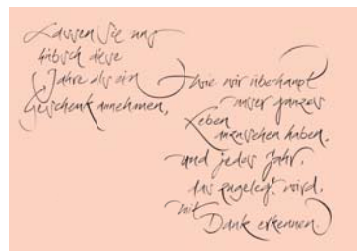 Lassen Sie uns
hübsch diese
Jahre als ein
Geschenk annehmen,
wie wir überhaupt
unser ganzes
Leben
anzusehen haben.
und jedes Jahr,
das zugelegt wird,
mit
Dank erkennen.